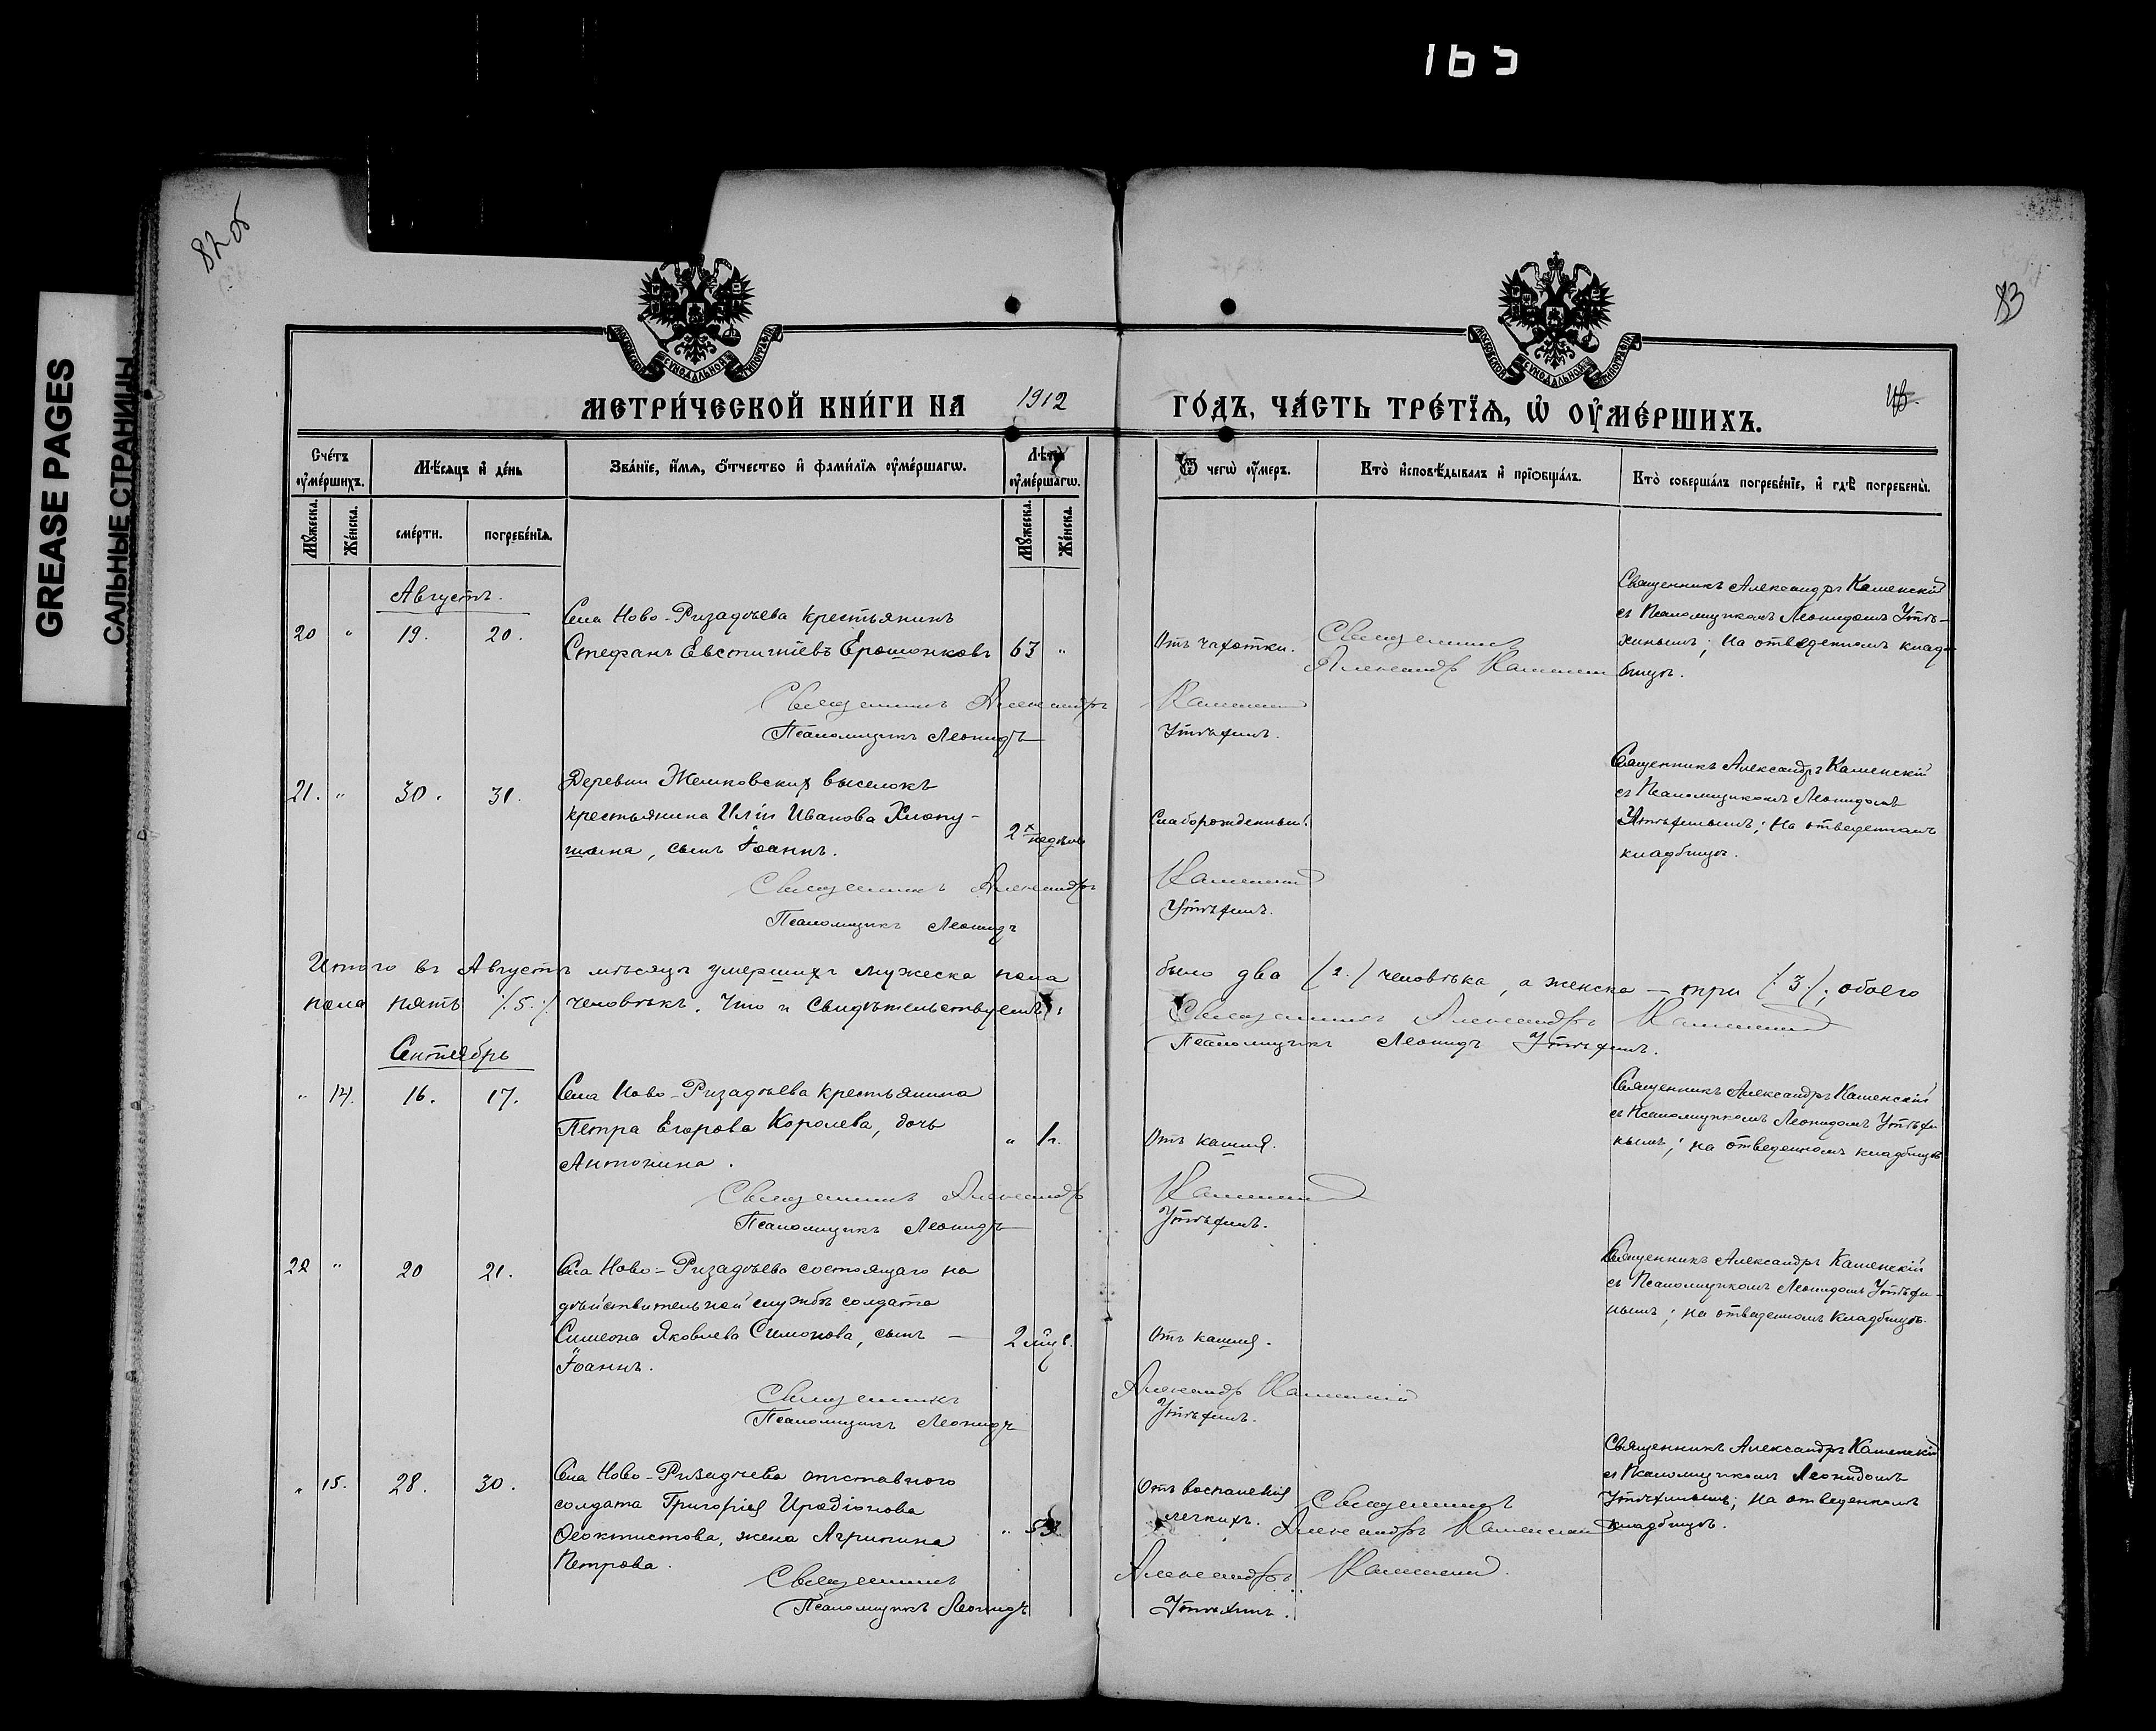 165
82об
83
GREASE PAGES
САЛЬНЫЕ СТРАНИЦЫ
МОСКОВСКОЙ СѴНОДАЛЬНОЙ ТИПОГРАФІИ
МОСКОВСКОЙ СѴНОДАЛЬНОЙ ТИПОГРАФІИ
МЕТРИ́ЧЕСКОЙ КНИ́ГИ НА 1912 ГО́ДЪ, ЧА́СТЬ ТРЕ́ТЇѦ, Ѡ҆ ОУ҆МЕ́РШИХЪ.
Сче́тъ оу҆ме́ршихъ.
Мѣ́сяцъ и҆ де́нь
Зва́нїе, и҆́мя, ѻ҆́тчество и҆ фами́лїя оу҆ме́ршагѡ.
Лѣ́та оу҆ме́ршагѡ.
Ѿ чегѡ̀ оу҆́меръ.
Кто̀ и҆сповѣ́дывалъ и҆ прїѡбща́лъ.
Кто̀ соверша́лъ погребе́нїе, и҆ гдѣ̀ погребены̀.
Мꙋ́жеска.
Же́нска.
сме́рти.
погребе́нїя.
Мꙋ́жеска.
Же́нска.
Августъ.
20 " 19. 20.
Села Ново-Ризадѣева крестьянинъ
Стефанъ Евстигнѣевъ Ерошонковъ 63 "
Отъ чахотки.
Священникъ
Александръ Каменскій
Священникъ Александръ Каменскій
съ Псаломщикомъ Леонидомъ Утѣ-
хинымъ; на отведенномъ клад-
бищѣ.
Священникъ Александръ Каменскій
Псаломщикъ Леонидъ Утѣхинъ.
21. " 30. 31.
Деревни Жемковскихъ выселокъ
крестьянина Иліи Иванова Хлопу-
шина, сынъ Іоаннъ.
2х недѣль
Слаборожденный.
Священникъ Александръ Каменскій
съ Псаломщикомъ Леонидомъ
Утѣхинымъ; на отведенномъ
кладбищѣ.
Священникъ Александръ Каменскій
Псаломщикъ Леонидъ Утѣхинъ.
Итого въ Августѣ мѣсяцѣ умершихъ мужеска пола было два (2.) человѣка, а женска — три (3); обоего
пола пять (5.) человѣкъ. Что и свидѣтельствуемъ:
Священникъ Александръ Каменскій
Псаломщикъ Леонидъ Утѣхинъ.
Сентябрь
" 14. 16. 17.
Села Ново-Ризадѣева крестьянина
Петра Егорова Королева, дочь
Антонина.
" 1г.
Отъ кашля.
Священникъ Александръ Каменскій
съ Псаломщикомъ Леонидомъ Утѣхи-
нымъ; на отведенномъ кладбищѣ
Священникъ Александръ Каменскій
Псаломщикъ Леонидъ Утѣхинъ.
22 " 20 21.
Села Ново-Ризадѣева состоящаго на
дѣйствительной службѣ солдата
Симеона Яковлева Симонова, сынъ —
Іоаннъ.
2 мѣц.
Отъ кашля.
Священникъ Александръ Каменскій
съ Псаломщикомъ Леонидомъ Утѣхи-
нымъ; на отведенномъ кладбищѣ.
Священникъ Александръ Каменскій
Псаломщикъ Леонидъ Утѣхинъ.
" 15. 28. 30.
Села Ново-Ризадѣева отставного
солдата Григорія Иродіонова
Ѳеоктистова, жена Агрипина
Петрова.
" 53
Отъ воспаленія
легкихъ.
Священникъ
Александръ Каменскій
Священникъ Александръ Каменскій
съ Псаломщикомъ Леонидомъ
Утѣхинымъ; на отведенномъ
кладбищѣ.
Священникъ Александръ Каменскій.
Псаломщикъ Леонидъ Утѣхинъ.